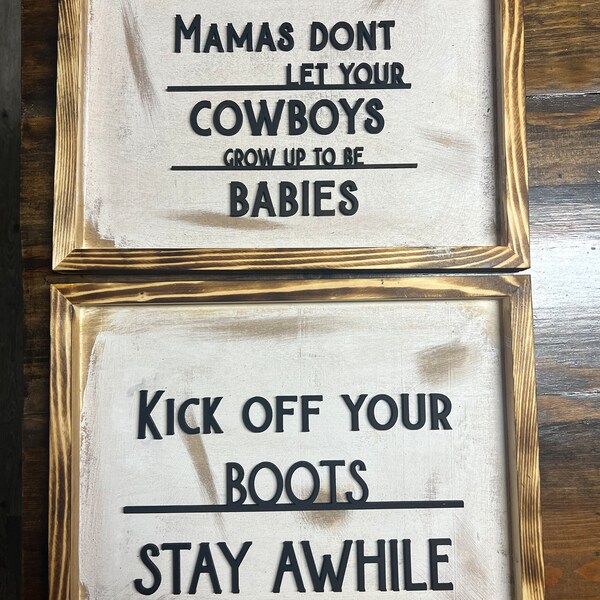 MAMAS DONT
LET YOUR
COWBOYS
GROW UP TO BE
BABIES
KICK OFF YOUR
BOOTS
STAY AWHILE